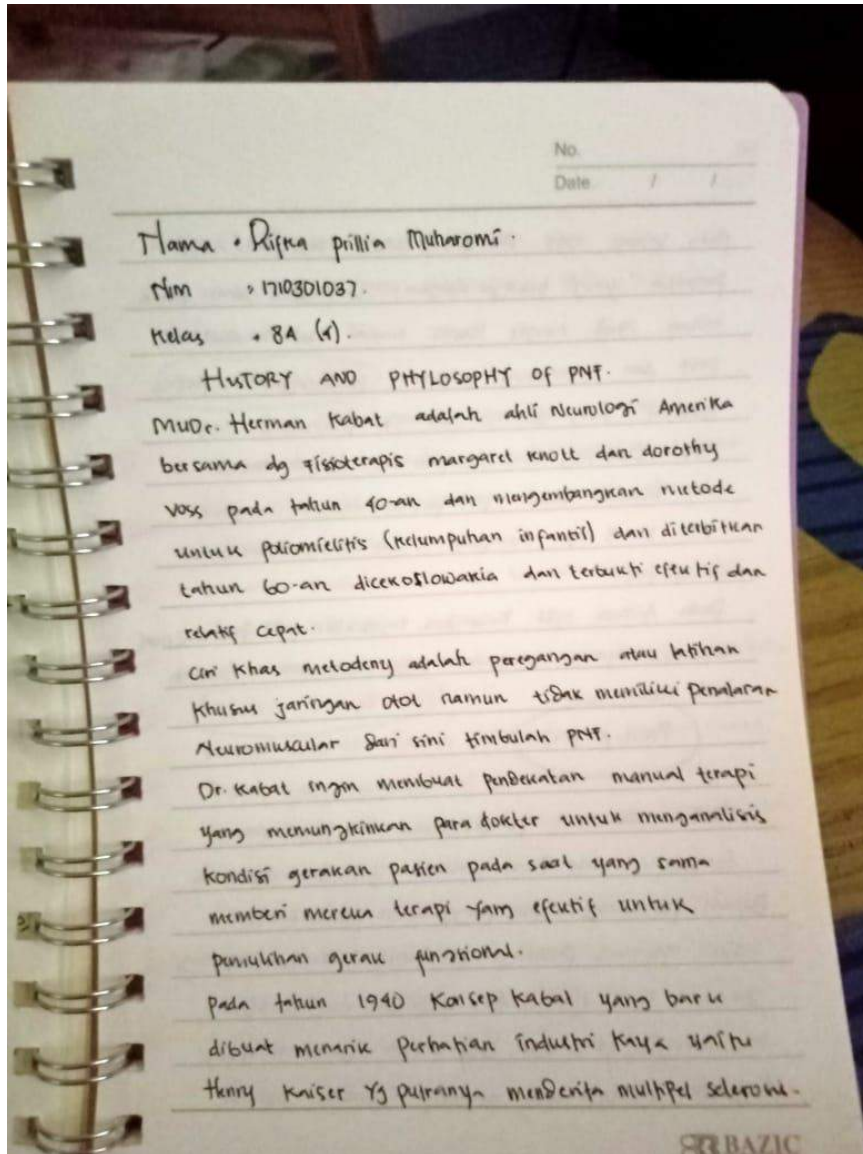 No.
Date / /
Nama : Rifka prillia Muharomi.
Nim : 1710301037.
Kelas : 8A (4).
HISTORY AND PHYLOSOPHY OF PNF.
MUDr. Herman Kabat adalah ahli Neurologi Amerika
bersama dg Fisioterapis margaret knott dan dorothy
voss pada tahun 40-an dan mengembangkan metode
untuk poliomielitis (kelumpuhan infantil) dan diterbitkan
tahun 60-an dicekoslowakia dan terbukti efektif dan
relatif cepat.
Ciri khas metodeny adalah peregangan atau latihan
khusus jaringan otot namun tidak memiliki penalaran
Neuromuscular dari sini timbulah PNF.
Dr. Kabat ingin membuat pendekatan manual terapi
yang memungkinkan para dokter untuk menganalisis
kondisi gerakan pasien pada saat yang sama
memberi mereka terapi yang efektif untuk
pemulihan gerak fungsional.
pada tahun 1940 Konsep Kabat yang baru
dibuat menarik perhatian industri kaya yaitu
Henry Kaiser yg putranya menderita multipel sclerosis.
BAZIC